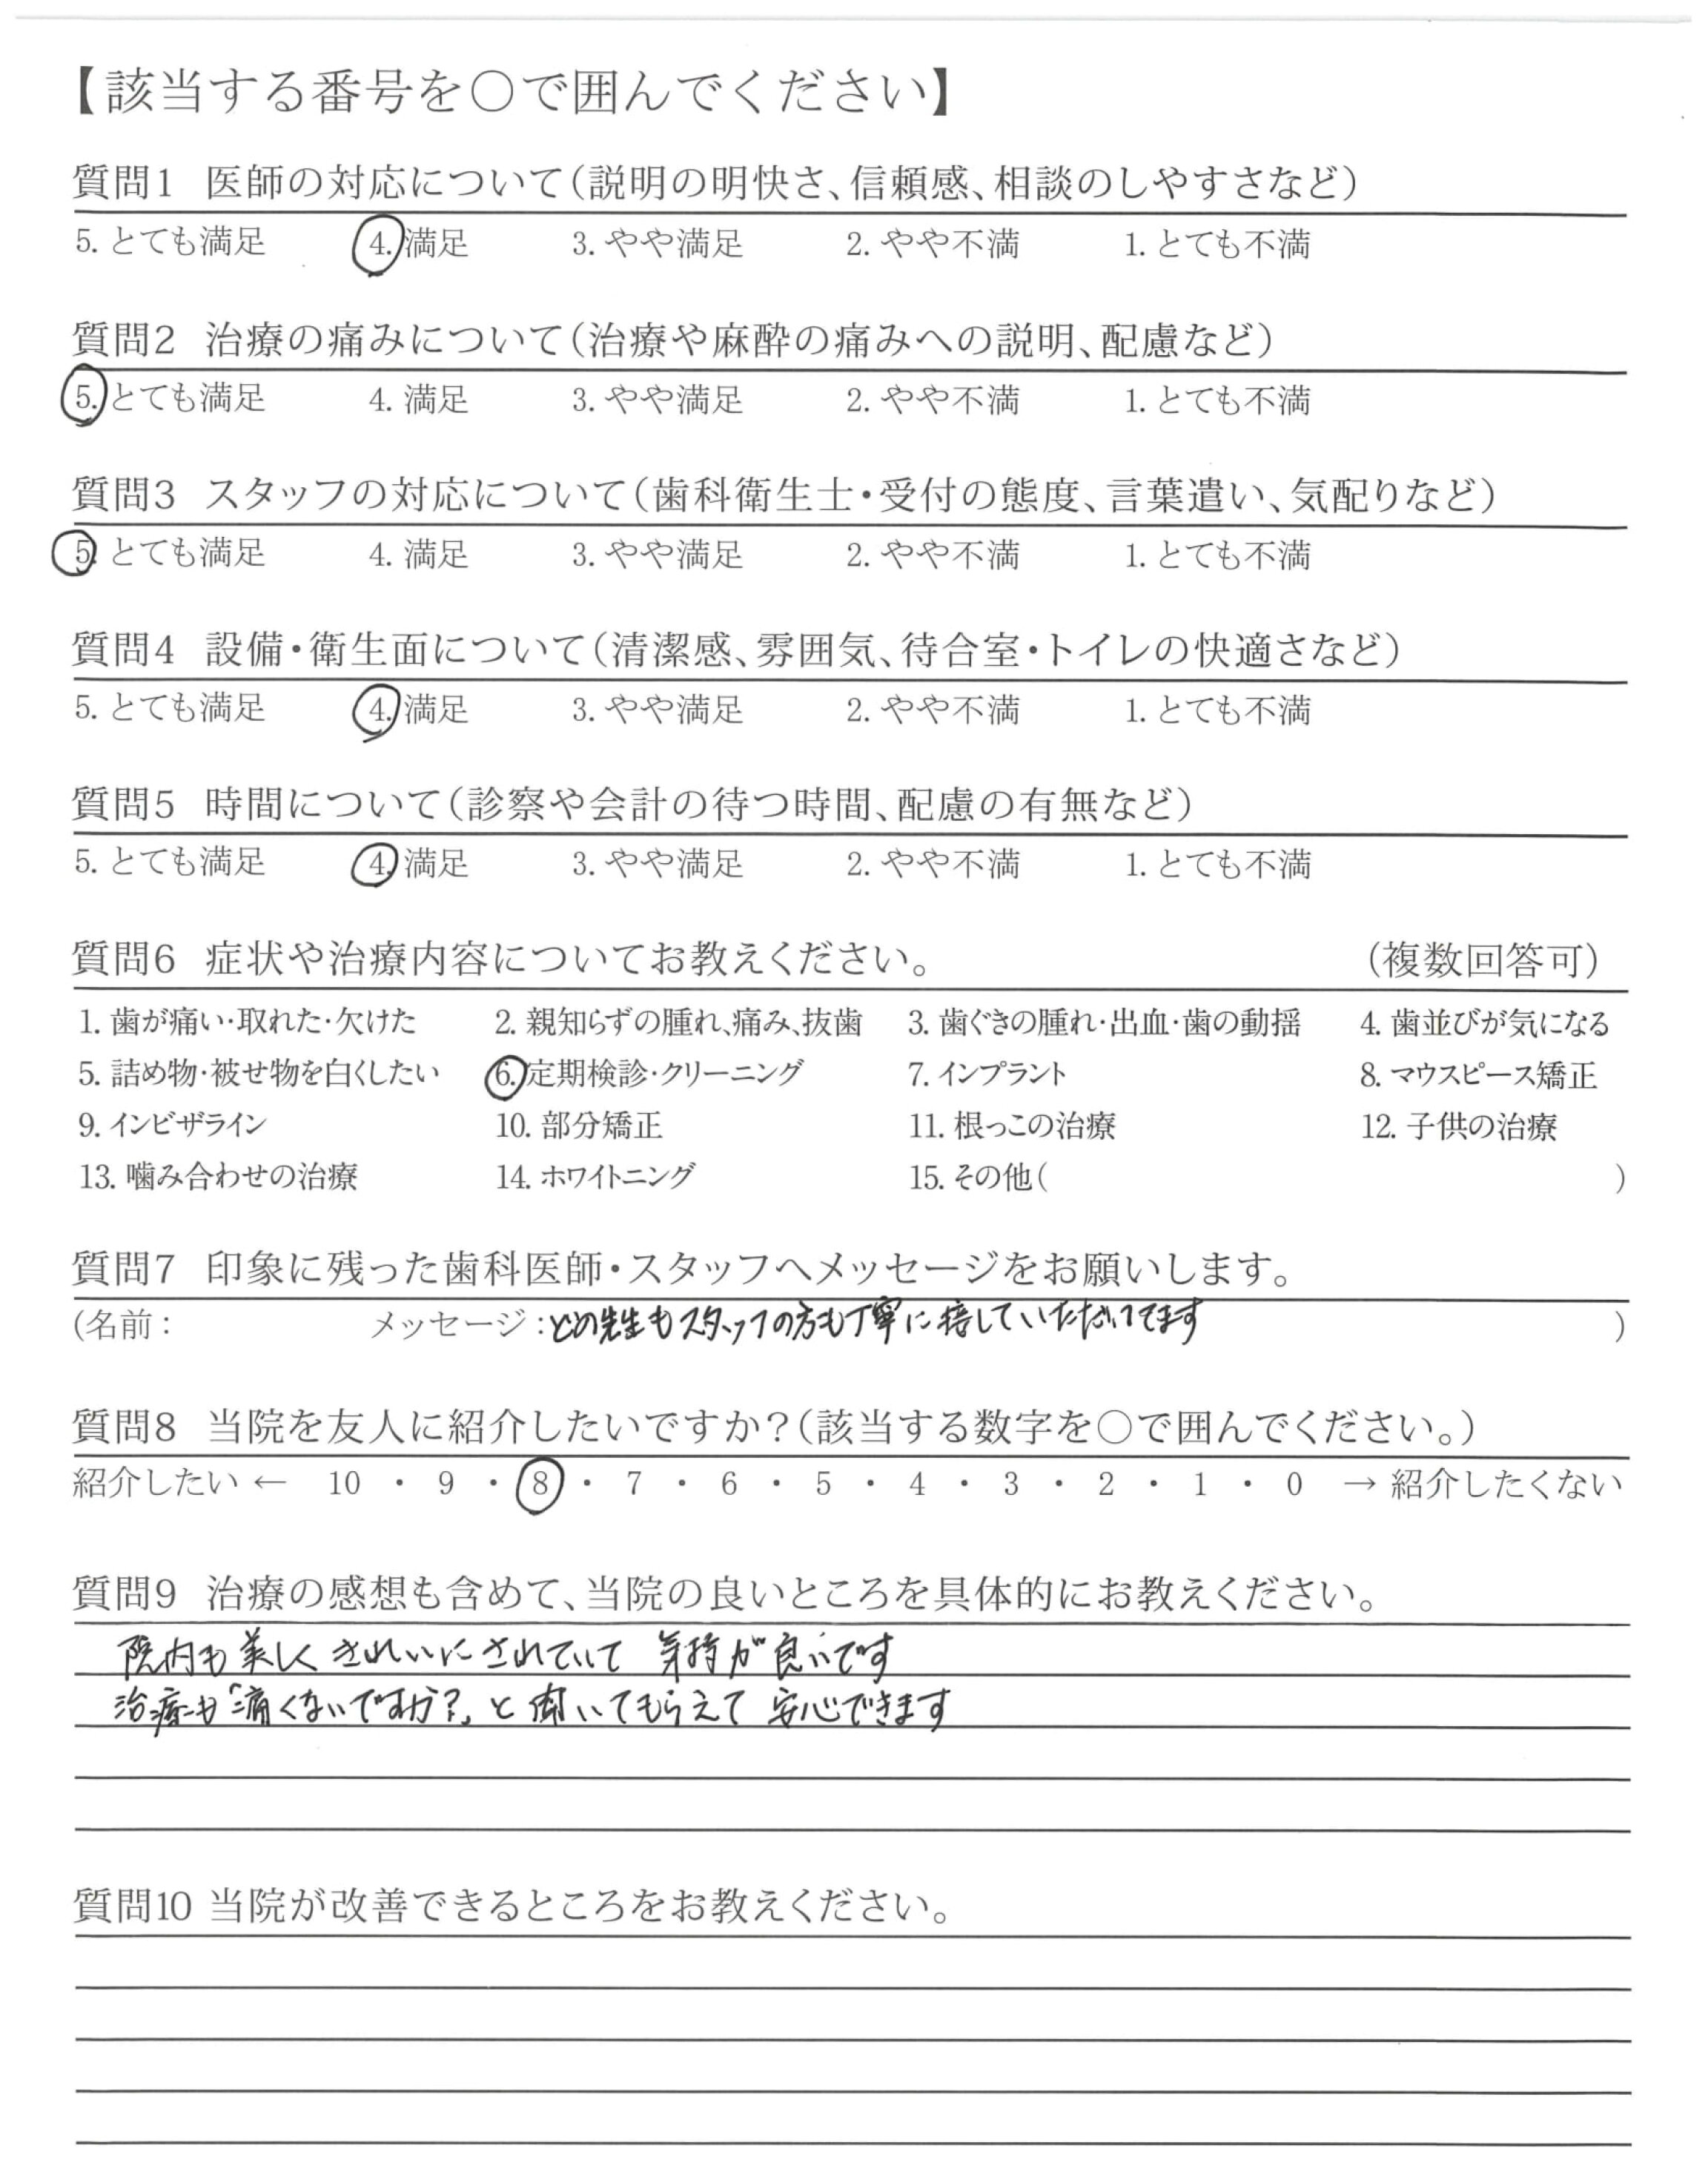 【該当する番号を○で囲んでください】
質問1 医師の対応について(説明の明快さ、信頼感、相談のしやすさなど)
5. とても満足 4. 満足 3. やや満足 2. やや不満 1. とても不満
質問2 治療の痛みについて(治療や麻酔の痛みへの説明、配慮など)
5. とても満足 4. 満足 3. やや満足 2. やや不満 1. とても不満
質問3 スタッフの対応について(歯科衛生士・受付の態度、言葉遣い、気配りなど)
5. とても満足 4. 満足 3. やや満足 2. やや不満 1. とても不満
質問4 設備・衛生面について(清潔感、雰囲気、待合室・トイレの快適さなど)
5. とても満足 4. 満足 3. やや満足 2. やや不満 1. とても不満
質問5 時間について(診察や会計の待つ時間、配慮の有無など)
5. とても満足 4. 満足 3. やや満足 2. やや不満 1. とても不満
質問6 症状や治療内容についてお教えください。 (複数回答可)
1. 歯が痛い・取れた・欠けた 2. 親知らずの腫れ、痛み、抜歯 3. 歯ぐきの腫れ・出血・歯の動揺 4. 歯並びが気になる
5. 詰め物・被せ物を白くしたい 6. 定期検診・クリーニング 7. インプラント 8. マウスピース矯正
9. インビザライン 10. 部分矯正 11. 根っこの治療 12. 子供の治療
13. 噛み合わせの治療 14. ホワイトニング 15. その他( )
質問7 印象に残った歯科医師・スタッフへメッセージをお願いします。
(名前: メッセージ:どの先生もスタッフの方も丁寧に接していただいてます )
質問8 当院を友人に紹介したいですか?(該当する数字を○で囲んでください。)
紹介したい ← 10 ・ 9 ・ 8 ・ 7 ・ 6 ・ 5 ・ 4 ・ 3 ・ 2 ・ 1 ・ 0 → 紹介したくない
質問9 治療の感想も含めて、当院の良いところを具体的にお教えください。
院内も美しくきれいにされていて 気持が良いです
治療も「痛くないですか?」と聞いてもらえて 安心できます
質問10 当院が改善できるところをお教えください。